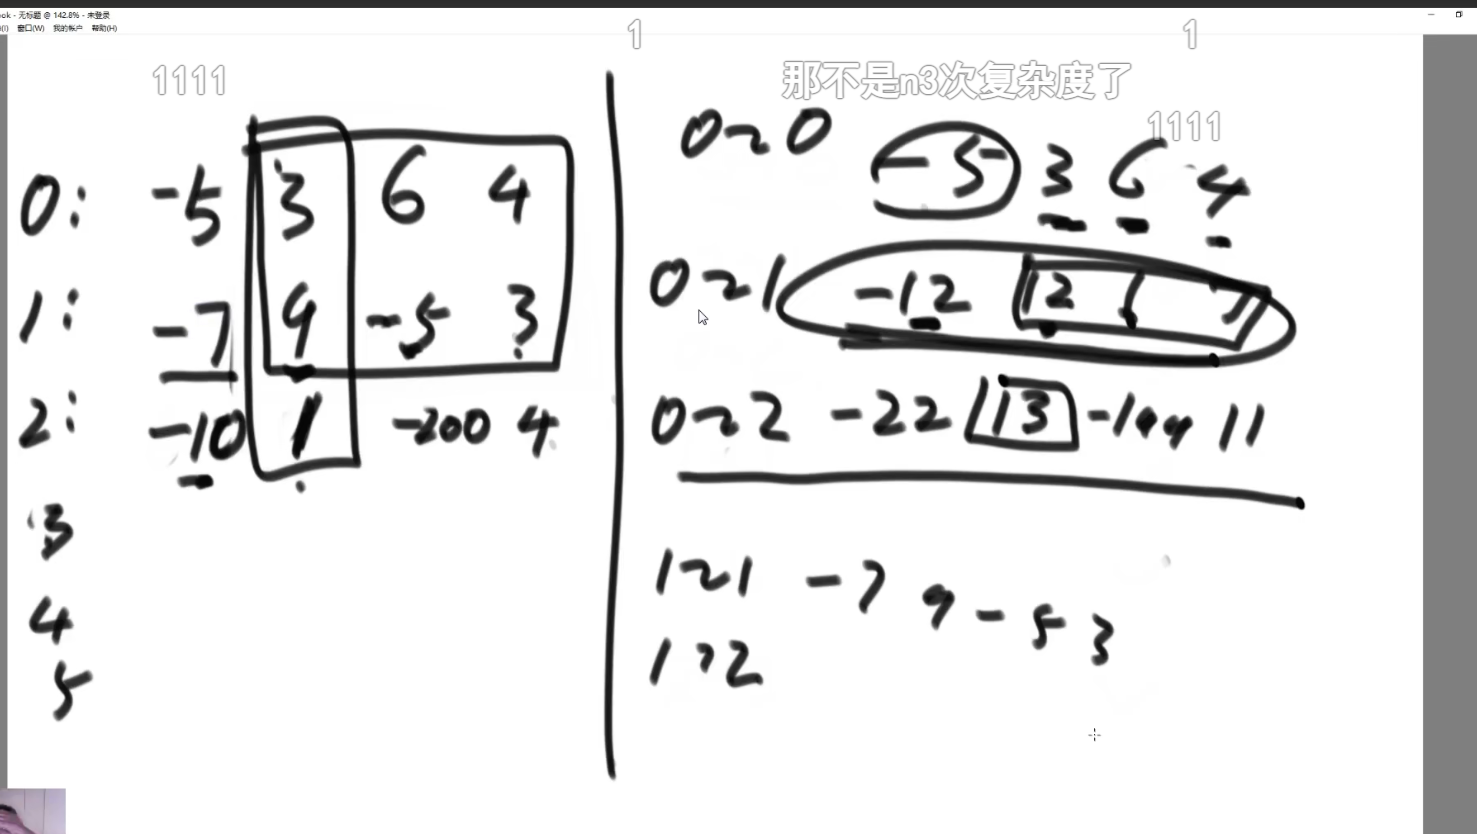 ok - 无标题 @ 142.8% - 未登录
窗口(W) 我的帐户 帮助(H)
1 1
1111
那不是n3次复杂度了
1111
0: -5 3 6 4
1: -7 9 -5 3
2: -10 1 -200 4
3
4
5
0~0 -5 3 6 4
0~1 -12 12 1 7
0~2 -22 13 -199 11
1~1 -7 9 -5 3
1~2